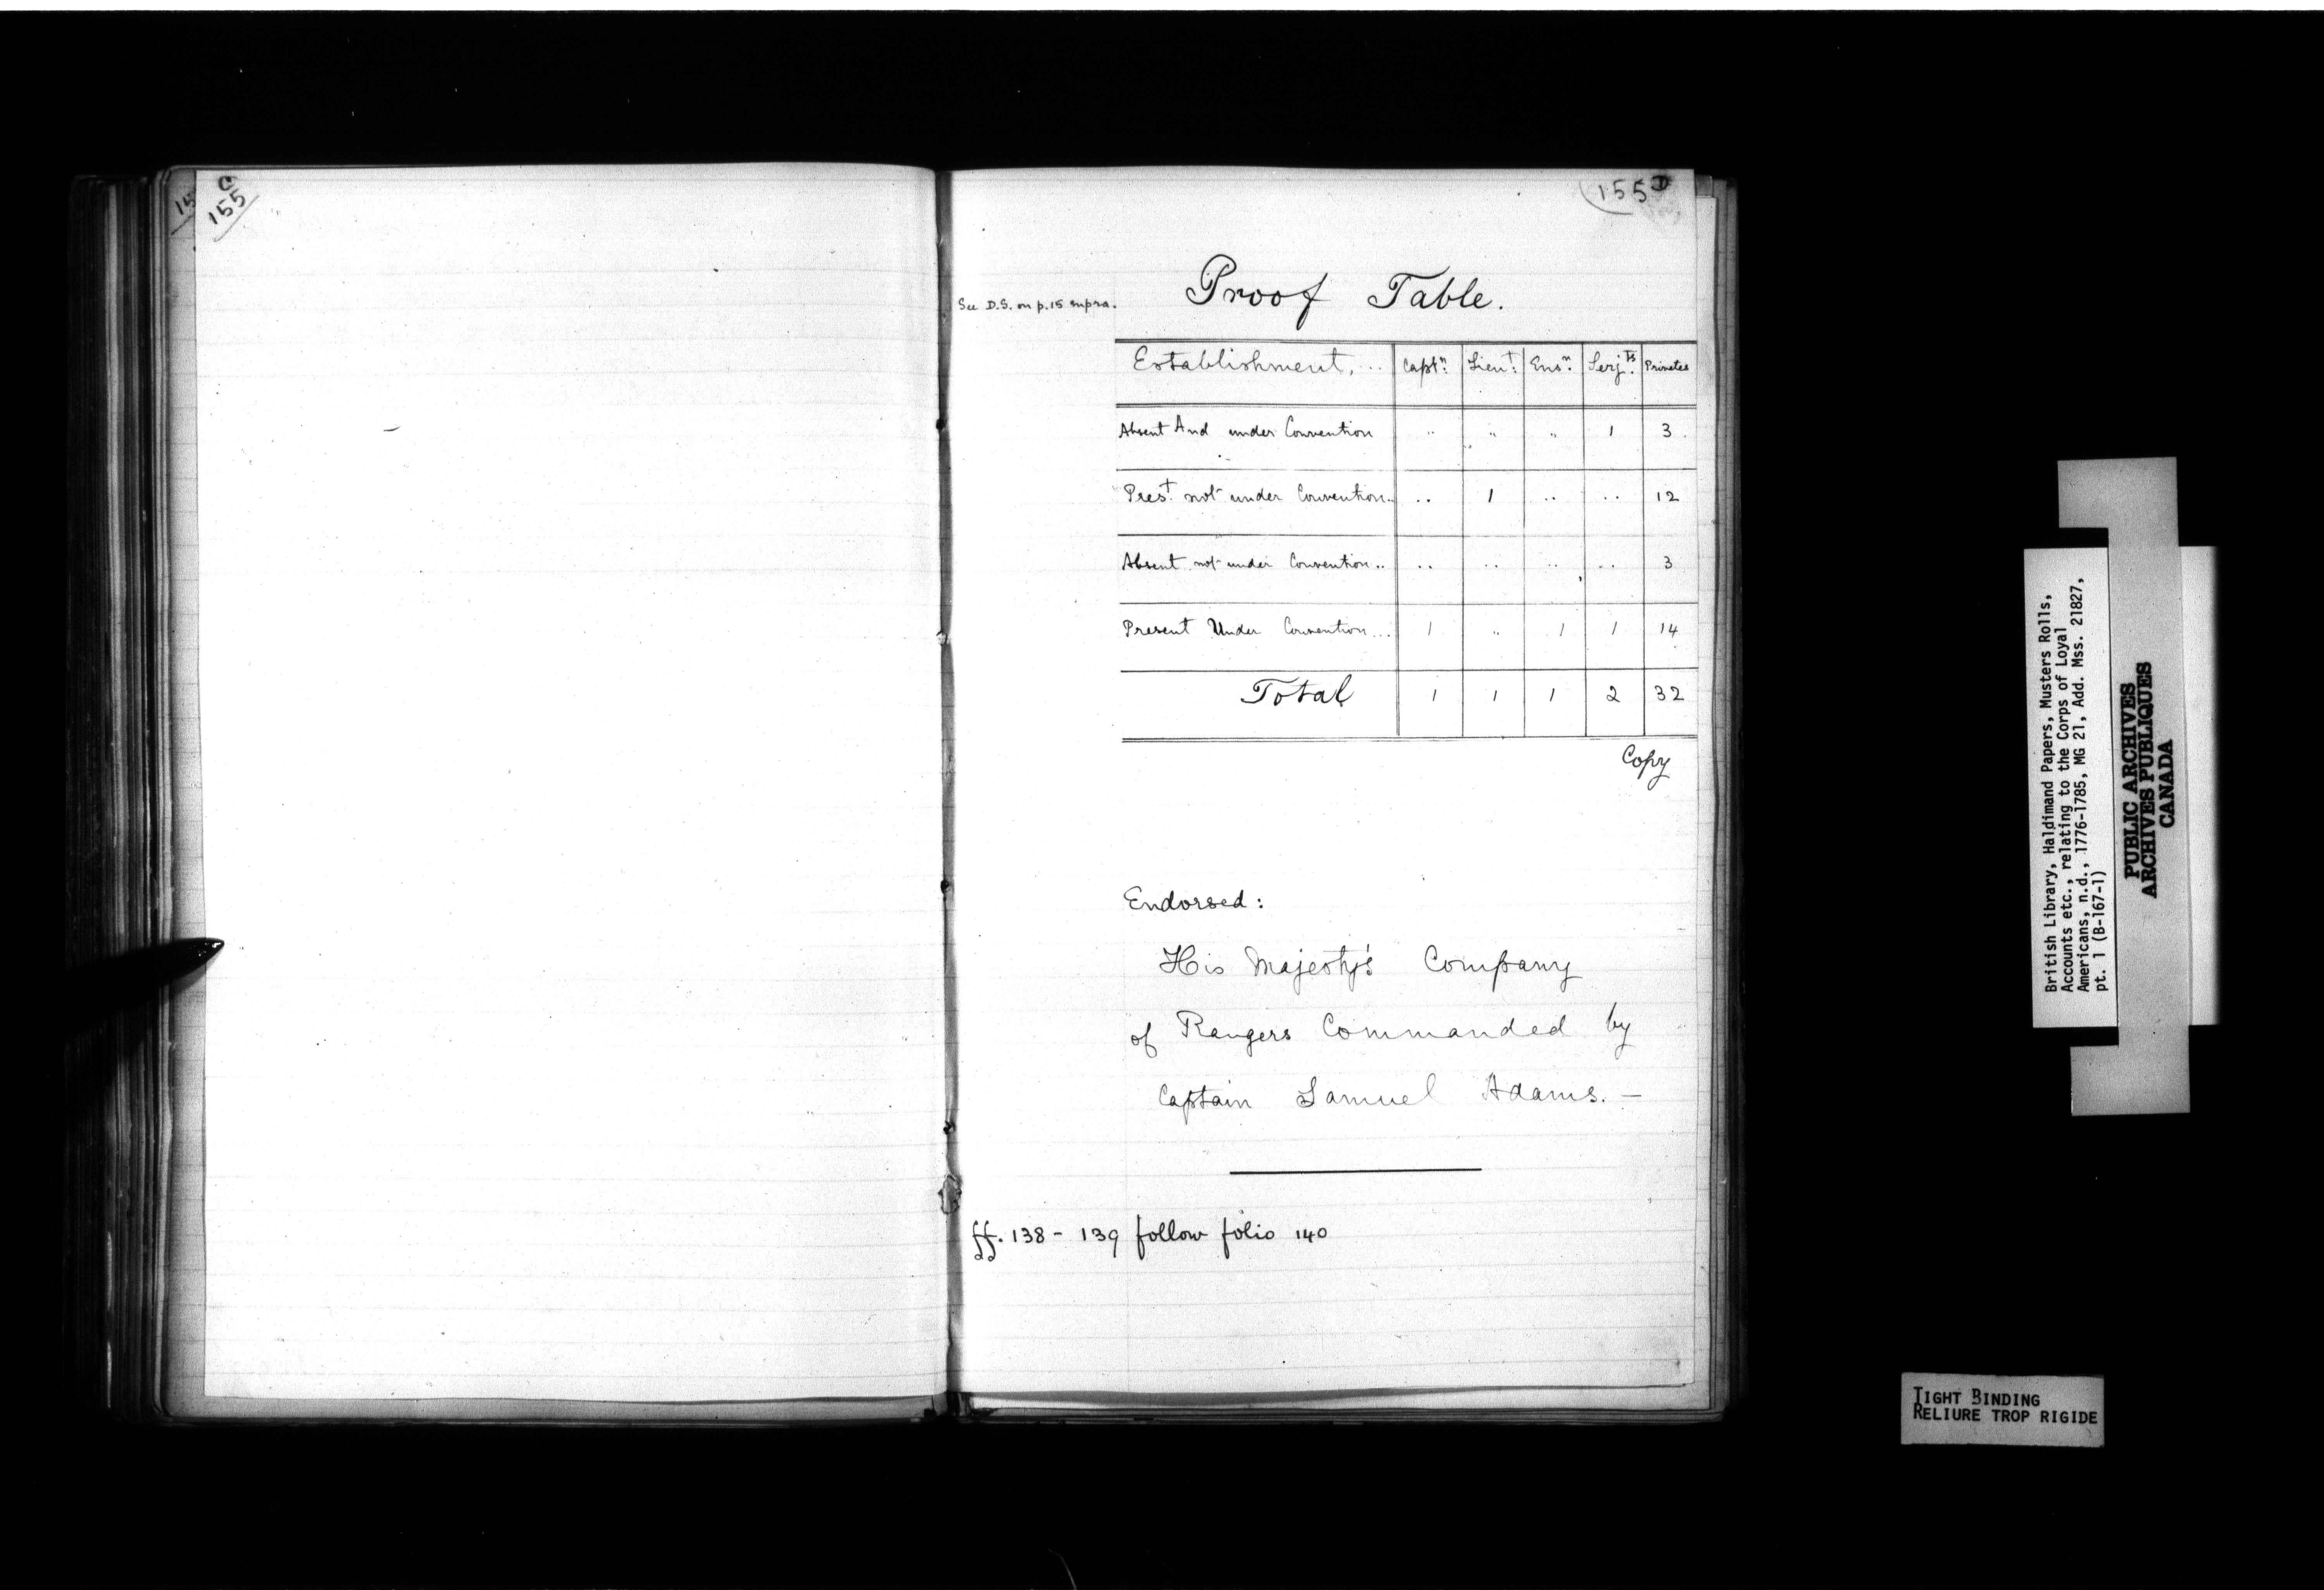 C
155
155D
See D.S. on p.15 supra.
Proof Table.
Establishment, ... Captn: Lieut: Ensn: Serjts: Privates
Absent And under Convention " " " 1 3
Prest. not under Convention.. .. 1 .. .. 12
Absent not under Convention.. .. .. .. .. 3
Present Under Convention... 1 " 1 1 14
Total 1 1 1 2 32
Copy
Endorsed:
His Majesty's Company
of Rangers Commanded by
Captain Samuel Adams. —
ff. 138 - 139 follow folio 140
British Library, Haldimand Papers, Musters Rolls,
Accounts etc., relating to the Corps of Loyal
Americans, n.d., 1776-1785, MG 21, Add. Mss. 21827,
pt. 1 (B-167-1)
PUBLIC ARCHIVES
ARCHIVES PUBLIQUES
CANADA
TIGHT BINDING
RELIURE TROP RIGIDE